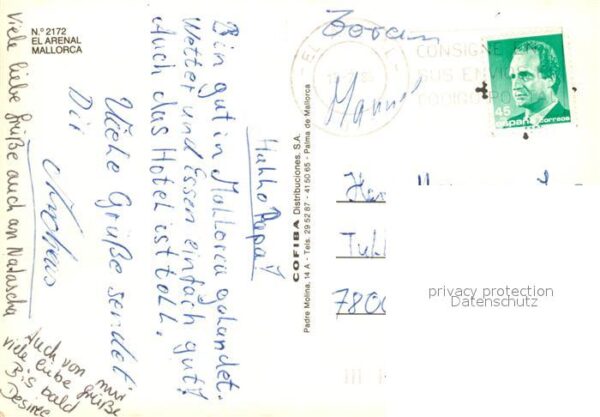 N.º 2172
EL ARENAL
MALLORCA
Hallo Papa!
Bin gut in Mallorca gelandet.
Wetter und Essen einfach gut!
Auch das Hotel ist toll.
Viele Grüße sendet
Dir
Viele liebe Grüße auch an Natascha
Auch von mir
viele liebe Grüße
Bis bald
Desiree
COFIBA Distribuciones, S.A.
Padre Molina, 14 A - Tels. 29 52 87 - 41 50 65 - Palma de Mallorca
CONSIGNE EN
SUS ENVIOS
CODIGO PO
45
españa correos
780
privacy protection
Datenschutz